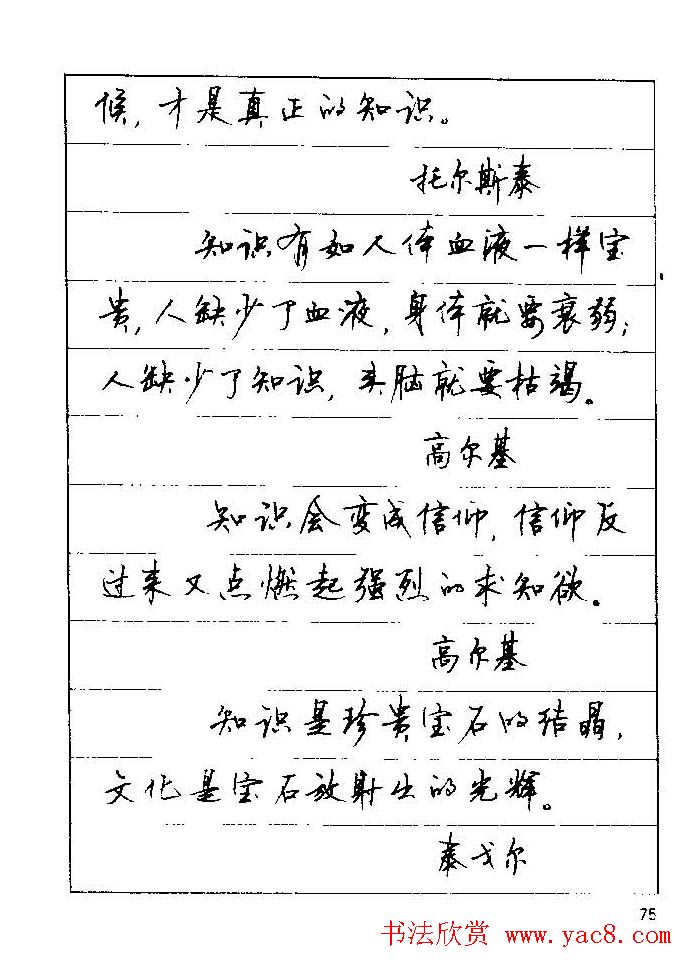 候，才是真正的知识。
托尔斯泰
知识有如人体血液一样宝
贵，人缺少了血液，身体就要衰弱；
人缺少了知识，头脑就要枯竭。
高尔基
知识会变成信仰，信仰反
过来又点燃起强烈的求知欲。
高尔基
知识是珍贵宝石的结晶，
文化是宝石放射出的光辉。
泰戈尔
75
书法欣赏 www.yac8.com